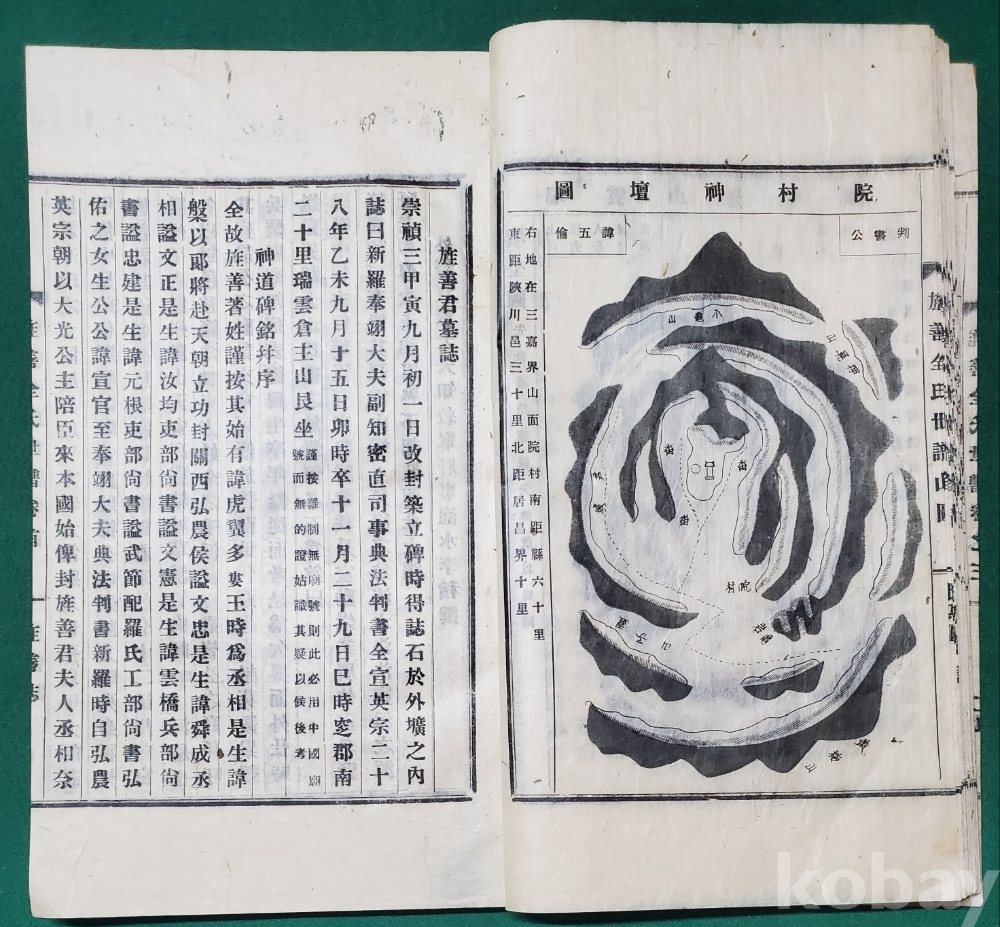 院村神壇圖
判書公
諱五倫
右地在三嘉界山面院村南距縣六十里
東距陜川邑三十里北距居昌界十里
小龜山
院村
旌善君墓誌
崇禎三甲寅九月初一日改封築立碑時得誌石於外壙之內
誌曰新羅奉翊大夫副知密直司事典法判書全宣英宗二十
八年乙未九月十五日卯時卒十一月二十九日巳時窆郡南
二十里瑞雲倉主山艮坐
謹按羅制無廟號則此必用中國廟
號而無的證姑識其疑以俟後考
神道碑銘幷序
全故旌善著姓謹按其始有諱虎翼多婁王時爲丞相是生諱
槃以郞將赴天朝立功封關西弘農侯謚文忠是生諱舜成丞
相謚文正是生諱汝均吏部尙書謚文憲是生諱雲橋兵部尙
書謚忠建是生諱元根吏部尙書謚武節配羅氏工部尙書弘
佑之女生公公諱宣官至奉翊大夫典法判書新羅時自弘農
英宗朝以大光公主陪臣來本國始俾封旌善君夫人丞相奈
kobay